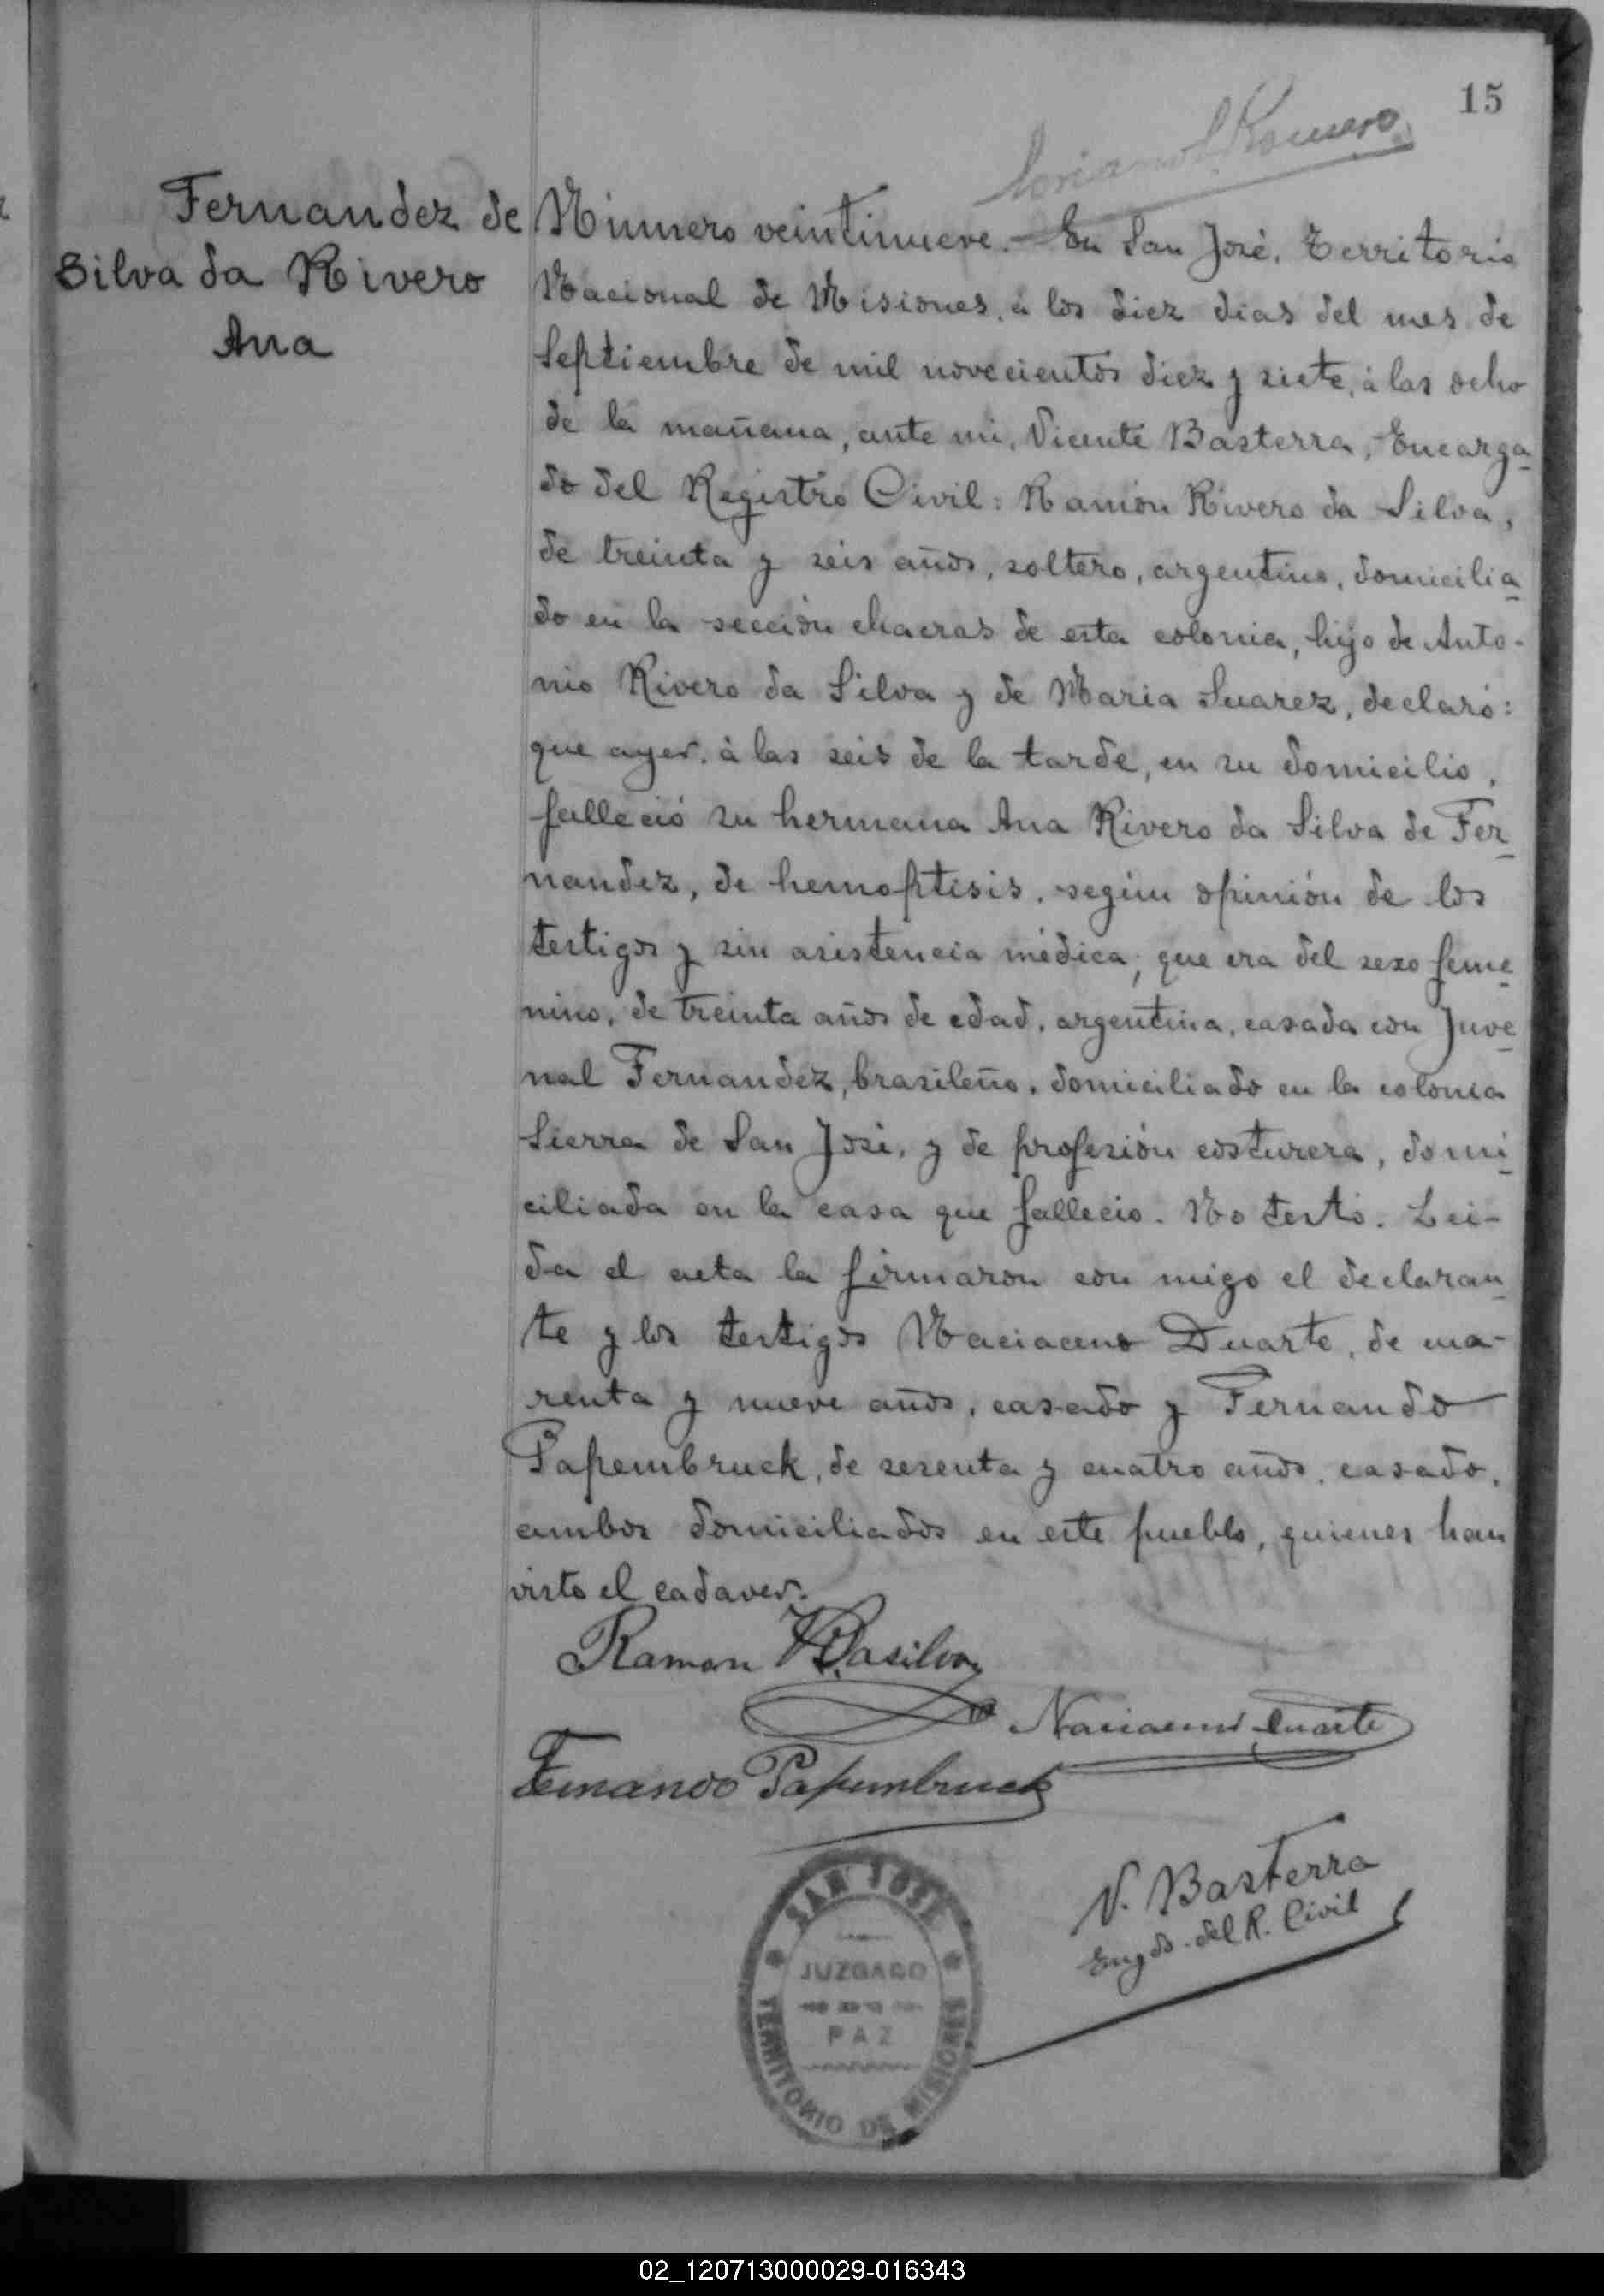 15
Romero
Fernandez de
Silva da Rivero
Ana
Número veintinueve.- En San José, Territorio
Nacional de Misiones, á los diez dias del mes de
Septiembre de mil novecientos diez y siete, á las ocho
de la mañana, ante mi, Vicente Basterra, Encarga
do del Registro Civil: Ramón Rivero da Silva,
de treinta y seis años, soltero, argentino, domicilia
do en la sección chacras de esta colonia, hijo de Anto-
nio Rivero da Silva y de Maria Suarez, declaró:
que ayer, á las seis de la tarde, en su domicilio,
falleció su hermana Ana Rivero da Silva de Fer
nandez, de hemoptisis, según opinión de los
testigos y sin asistencia médica; que era del sexo feme
nino, de treinta años de edad, argentina, casada con Juve
nal Fernandez, brasileño, domiciliado en la colonia
Sierra de San José, y de profesión costurera, domi
ciliada en la casa que fallecio. No testó. Lei-
da el acta la firmaron con migo el declaran
te y los testigos Naciaceno Duarte, de cua-
renta y nueve años, casado y Fernando
Papembruck, de sesenta y cuatro años, casado,
ambos domiciliados en este pueblo, quienes han
visto el cadaver.
Ramon R Dasilva
Naciaceno Duarte
Fernando Papembruck
V. Basterra
Engdo. del R. Civil
SAN JOSE
JUZGADO
PAZ
TERRITORIO DE MISIONES
02_120713000029-016343